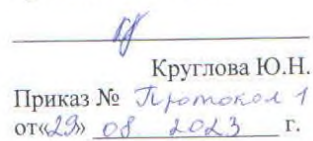 Круглова Ю.Н.
Приказ № Протокол 1
от«29» 08 2023 г.